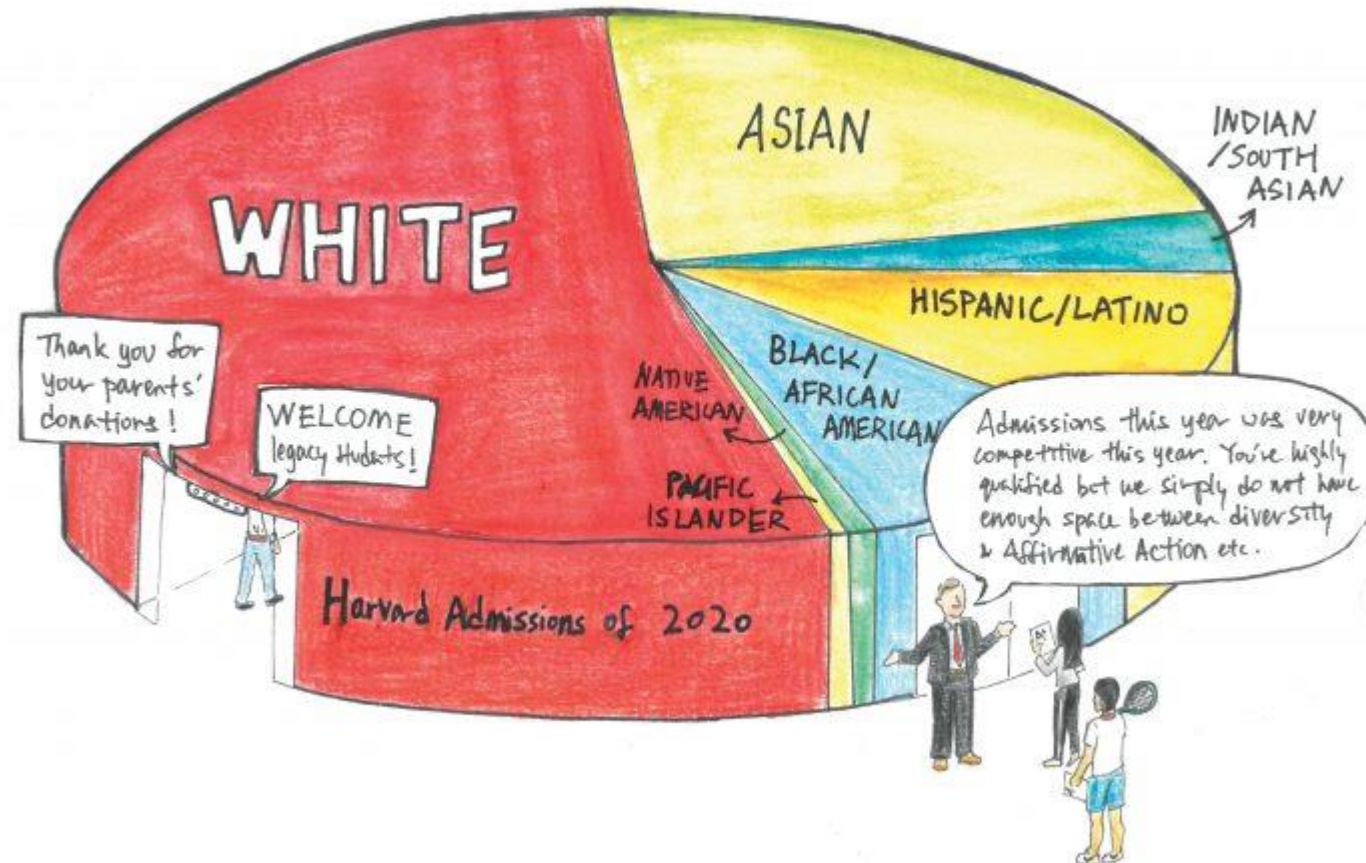 WHITE
ASIAN
INDIAN
/SOUTH
ASIAN
HISPANIC/LATINO
BLACK/
AFRICAN
AMERICAN
NATIVE
AMERICAN
PACIFIC
ISLANDER
Thank you for
your parents'
donations!
WELCOME
legacy students!
Admissions this year was very
competitive this year. You've highly
qualified but we simply do not have
enough space between diversity
& Affirmative Action etc.
Harvard Admissions of 2020